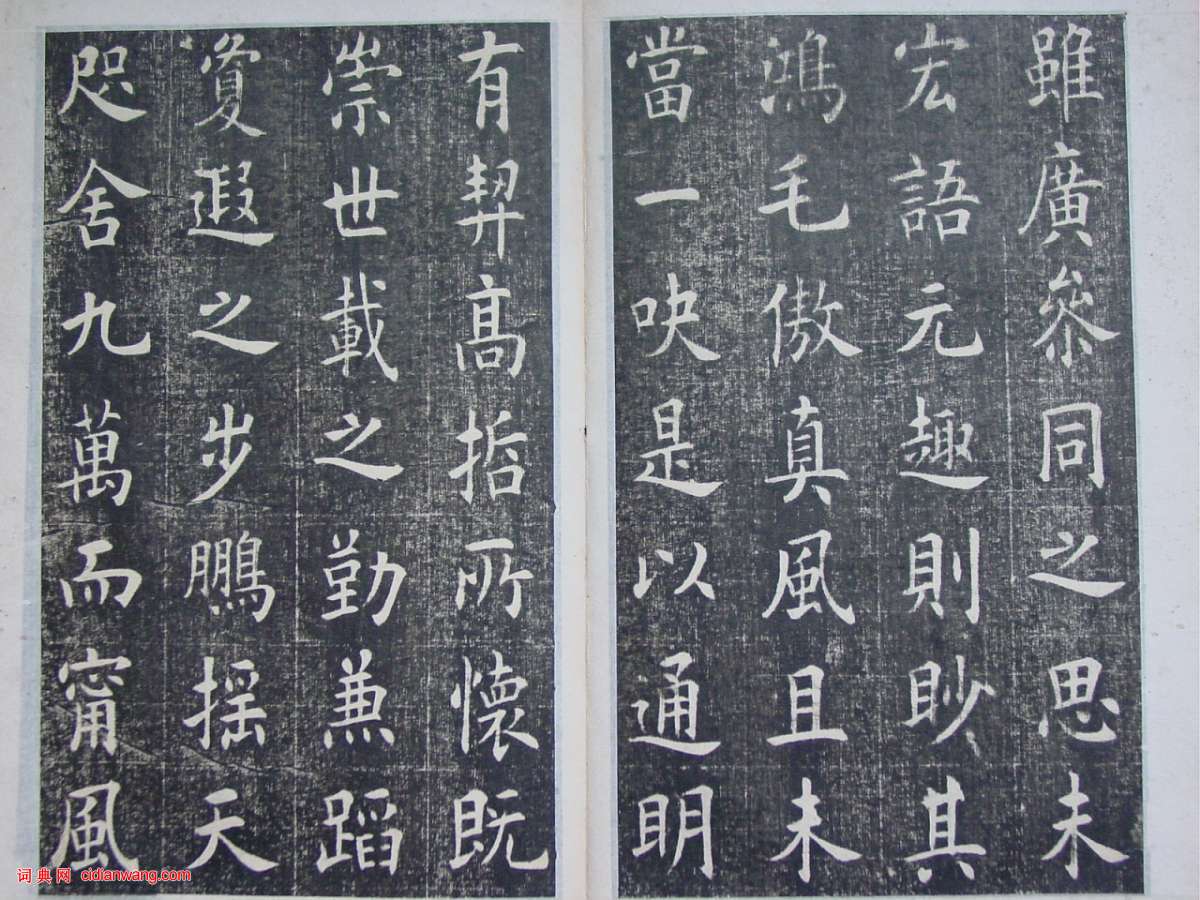 雖廣叅同之思未
宏語元趣則眇其
鴻毛傲真風且未
當一吷是以通明
有契高哲所懷既
崇世載之勤兼蹈
敻遐之步鵬搖天
咫舍九萬而甯風
词典网 cidianwang.com